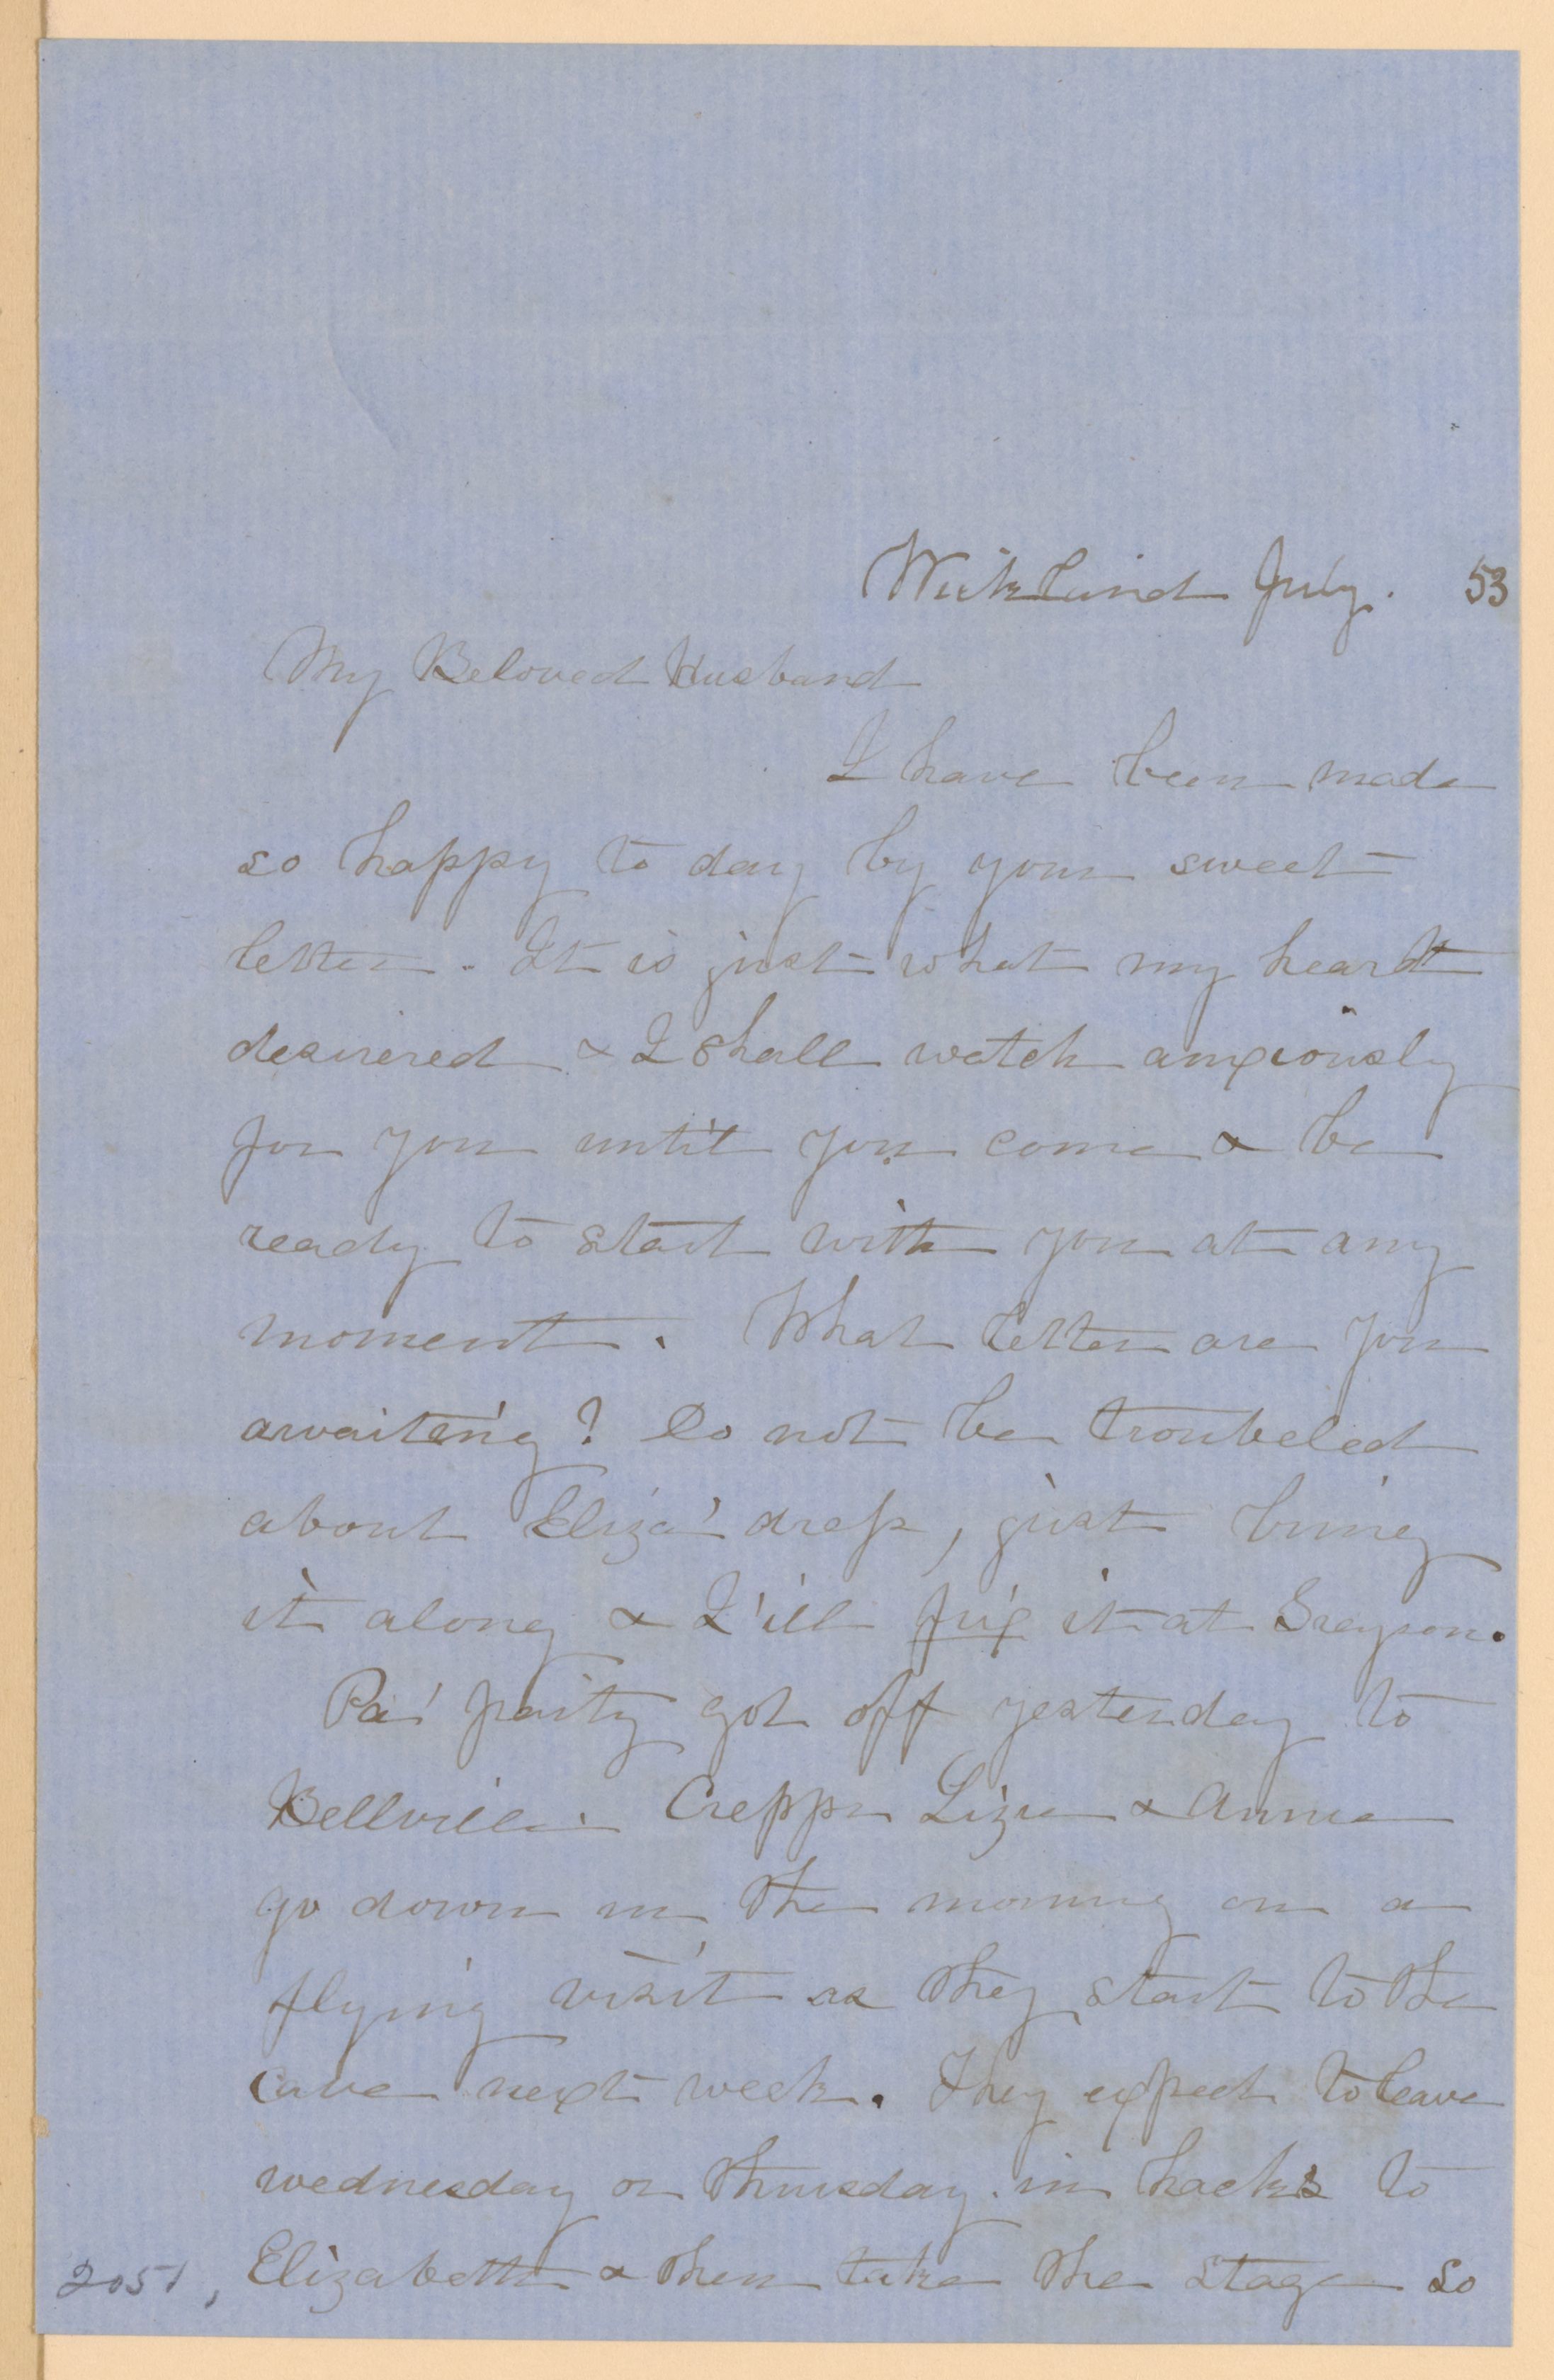 Wickland July. 53
My Beloved Husband
I have been made
so happy to day by your sweet
letter. It is just what my heart
desiered & I shall watch anxiously
for you until you come & be
ready to start with you at any
moment. What letter are you
awaiteing? Do not be troubeled
about Eliza' dress, just bring
it along & I'ill fix it at Grayson.
Pa' party got off yesterday to
Bellville. Crepps Lizie & Annie
go down in the morning on a
flying visit as they start to the
cave next week. They expect to leave
wednesday or Thursday in hacks to
Elizabeth & then take the stage so
2051,